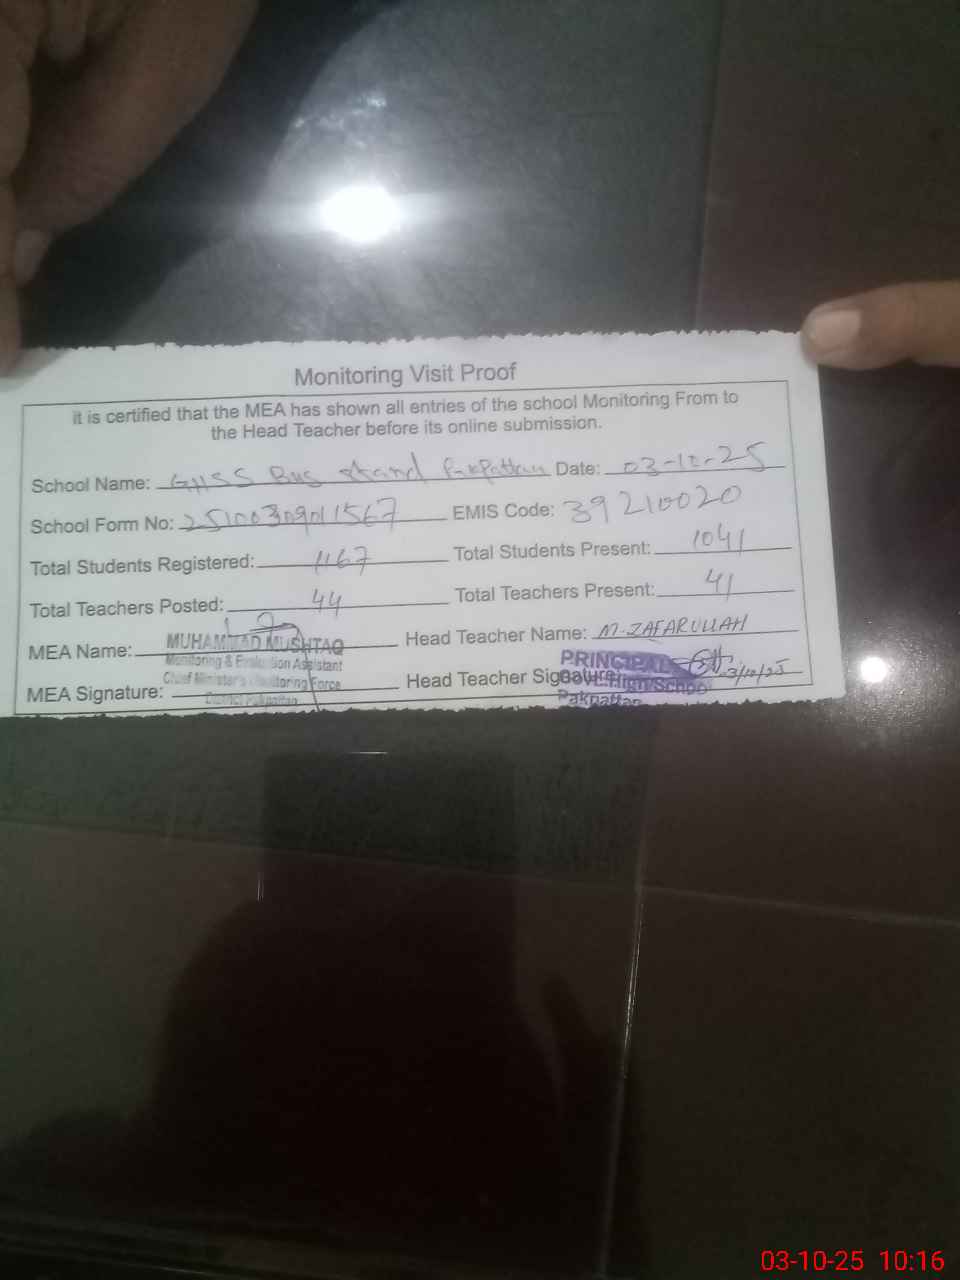 Monitoring Visit Proof
it is certified that the MEA has shown all entries of the school Monitoring From to
the Head Teacher before its online submission.
School Name: GHSS Bus stand Pakpattan Date: 03-10-25
School Form No: 25100309011567 EMIS Code: 39210020
Total Students Registered: 1167 Total Students Present: 1041
Total Teachers Posted: 44 Total Teachers Present: 41
MEA Name: MUHAMMAD MUSHTAQ Head Teacher Name: M. ZAFARULLAH
Monitoring & Evaluation Assistant
Chief Minister's Monitoring Force
District Pakpattan
MEA Signature: Head Teacher Signature:
PRINCIPAL
Govt. High School
Pakpattan
3/10/25
03-10-25 10:16